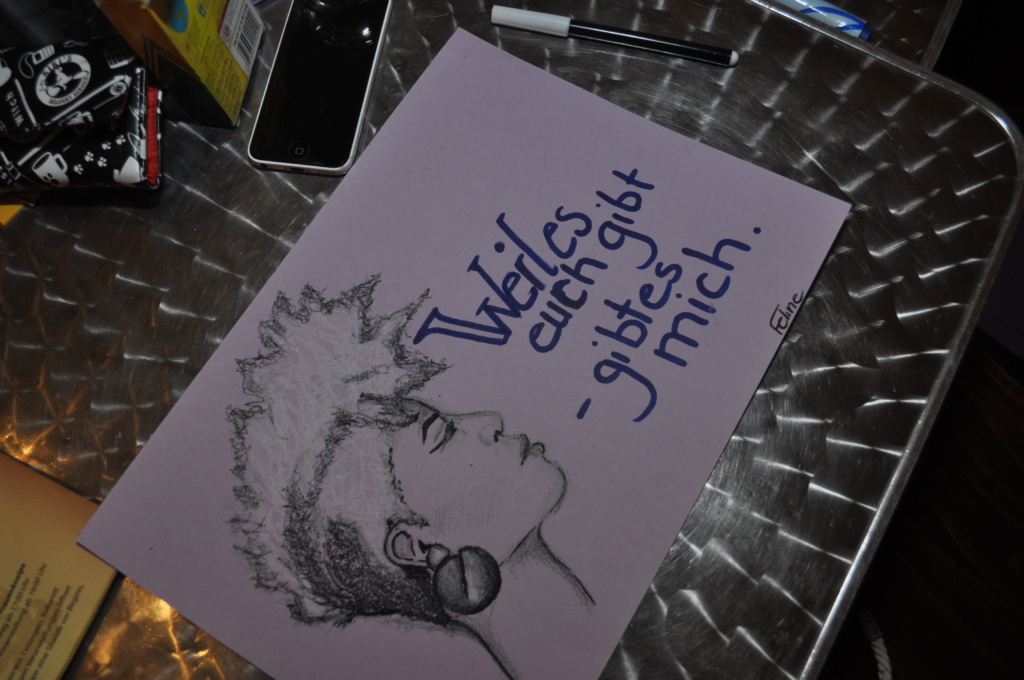 Weil es
euch gibt
- gibt es
mich.
Feline